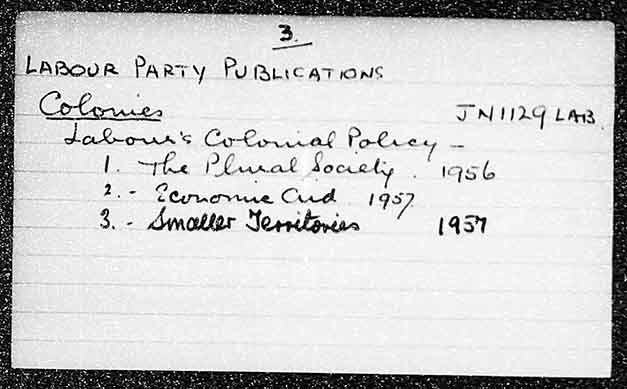 3.
LABOUR PARTY PUBLICATIONS
Colonies JN1129 LAB.
Labour's Colonial Policy -
1. The Plural Society. 1956
2. - Economic Aid. 1957
3. - Smaller Territories 1957